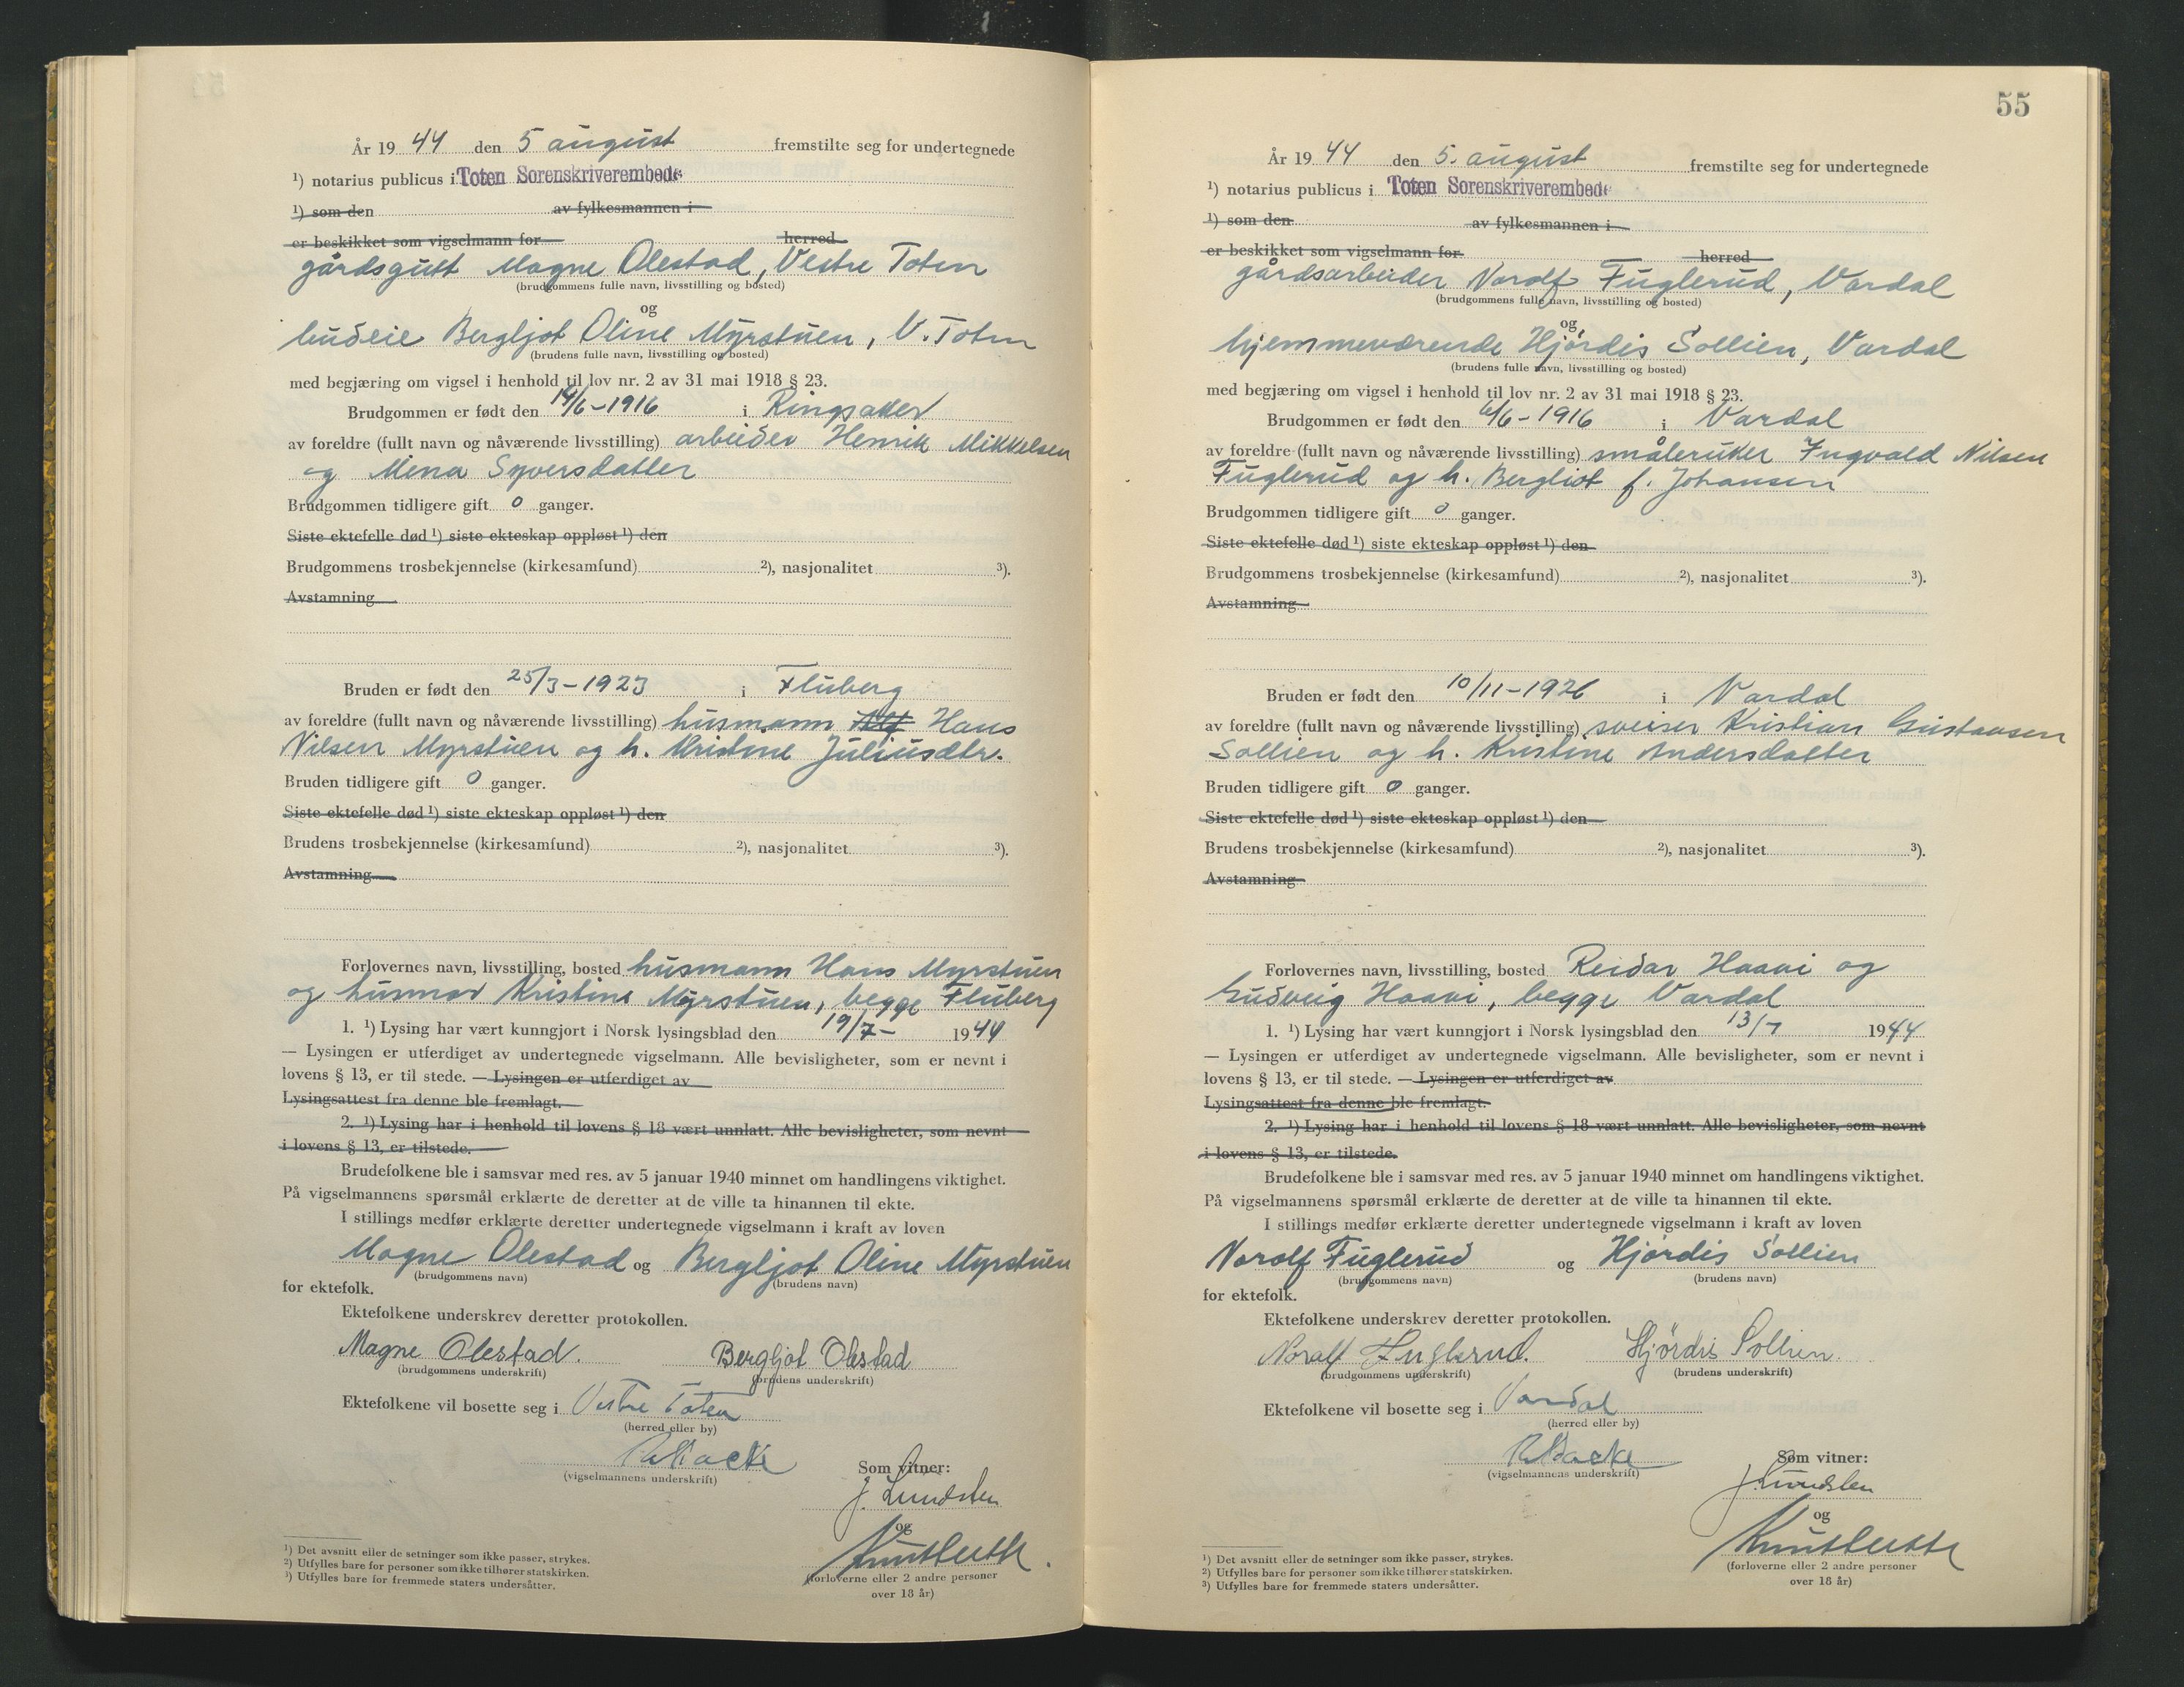 År 1944 den 5 august fremstilte seg for undertegnede
¹) notarius publicus i Toten Sorenskriverembede
¹) som den av fylkesmannen i
er beskikket som vigselmann for herred
gårdsgutt Magne Olestad, Vestre Toten
(brudgommens fulle navn, livsstilling og bosted)
og
budeie Bergljot Oline Myrstuen, V. Toten
(brudens fulle navn, livsstilling og bosted)
med begjæring om vigsel i henhold til lov nr. 2 av 31 mai 1918 § 23.
Brudgommen er født den 14/6-1916 i Ringsaker
av foreldre (fullt navn og nåværende livsstilling) arbeider Henrik Mikkelsen
og Mina Syversdatter
Brudgommen tidligere gift 0 ganger.
Siste ektefelle død ¹) siste ekteskap oppløst ¹) den
Brudgommens trosbekjennelse (kirkesamfund) ²), nasjonalitet ³).
Avstamning
Bruden er født den 25/3-1923 i Fluberg
av foreldre (fullt navn og nåværende livsstilling) husmann Alf Hans
Nilsen Myrstuen og h. Kristine Juliusdtr.
Bruden tidligere gift 0 ganger.
Siste ektefelle død ¹) siste ekteskap oppløst ¹) den
Brudens trosbekjennelse (kirkesamfund) ²), nasjonalitet ³).
Avstamning
Forlovernes navn, livsstilling, bosted husmann Hans Myrstuen
og husmor Kristine Myrstuen, begge Fluberg
1. ¹) Lysing har vært kunngjort i Norsk lysingsblad den 19/7- 1944
— Lysingen er utferdiget av undertegnede vigselmann. Alle bevisligheter, som er nevnt i
lovens § 13, er til stede. — Lysingen er utferdiget av
Lysingsattest fra denne ble fremlagt.
2. ¹) Lysing har i henhold til lovens § 18 vært unnlatt. Alle bevisligheter, som nevnt
i lovens § 13, er tilstede.
Brudefolkene ble i samsvar med res. av 5 januar 1940 minnet om handlingens viktighet.
På vigselmannens spørsmål erklærte de deretter at de ville ta hinannen til ekte.
I stillings medfør erklærte deretter undertegnede vigselmann i kraft av loven
Magne Olestad og Bergljot Oline Myrstuen
(brudgommens navn) (brudens navn)
for ektefolk.
Ektefolkene underskrev deretter protokollen.
Magne Olestad. Bergljot Olestad
(brudgommens underskrift) (brudens underskrift)
Ektefolkene vil bosette seg i Vestre Toten
(herred eller by)
(vigselmannens underskrift) Som vitner:
J. Lundsten
og
(forloverne eller 2 andre personer
over 18 år)
¹) Det avsnitt eller de setninger som ikke passer, strykes.
²) Utfylles bare for personer som ikke tilhører statskirken.
³) Utfylles bare for fremmede staters undersåtter.
55
År 1944 den 5. august fremstilte seg for undertegnede
¹) notarius publicus i Toten Sorenskriverembede
¹) som den av fylkesmannen i
er beskikket som vigselmann for herred
gårdsarbeider Norolf Fuglerud, Vardal
(brudgommens fulle navn, livsstilling og bosted)
og
hjemmeværende Hjørdis Sollien, Vardal
(brudens fulle navn, livsstilling og bosted)
med begjæring om vigsel i henhold til lov nr. 2 av 31 mai 1918 § 23.
Brudgommen er født den 6/6-1916 i Vardal
av foreldre (fullt navn og nåværende livsstilling) småbruker Ingvald Nilsen
Fuglerud og h. Bergliot f. Johansen
Brudgommen tidligere gift 0 ganger.
Siste ektefelle død ¹) siste ekteskap oppløst ¹) den
Brudgommens trosbekjennelse (kirkesamfund) ²), nasjonalitet ³).
Avstamning
Bruden er født den 10/11-1926 i Vardal
av foreldre (fullt navn og nåværende livsstilling) sveiser Kristian Gustavsen
Sollien og h. Kristine Andersdatter
Bruden tidligere gift 0 ganger.
Siste ektefelle død ¹) siste ekteskap oppløst ¹) den
Brudens trosbekjennelse (kirkesamfund) ²), nasjonalitet ³).
Avstamning
Forlovernes navn, livsstilling, bosted Reidar Haavi og
Gudveig Haavi, begge Vardal
1. ¹) Lysing har vært kunngjort i Norsk lysingsblad den 13/7 1944
— Lysingen er utferdiget av undertegnede vigselmann. Alle bevisligheter, som er nevnt i
lovens § 13, er til stede. — Lysingen er utferdiget av
Lysingsattest fra denne ble fremlagt.
2. ¹) Lysing har i henhold til lovens § 18 vært unnlatt. Alle bevisligheter, som nevnt
i lovens § 13, er tilstede.
Brudefolkene ble i samsvar med res. av 5 januar 1940 minnet om handlingens viktighet.
På vigselmannens spørsmål erklærte de deretter at de ville ta hinannen til ekte.
I stillings medfør erklærte deretter undertegnede vigselmann i kraft av loven
Norolf Fuglerud og Hjørdis Sollien
(brudgommens navn) (brudens navn)
for ektefolk.
Ektefolkene underskrev deretter protokollen.
Noralf Fuglerud. Hjördis Sollien.
(brudgommens underskrift) (brudens underskrift)
Ektefolkene vil bosette seg i Vardal
(herred eller by)
(vigselmannens underskrift) Som vitner:
J. Lundsten
og
(forloverne eller 2 andre personer
over 18 år)
¹) Det avsnitt eller de setninger som ikke passer, strykes.
²) Utfylles bare for personer som ikke tilhører statskirken.
³) Utfylles bare for fremmede staters undersåtter.